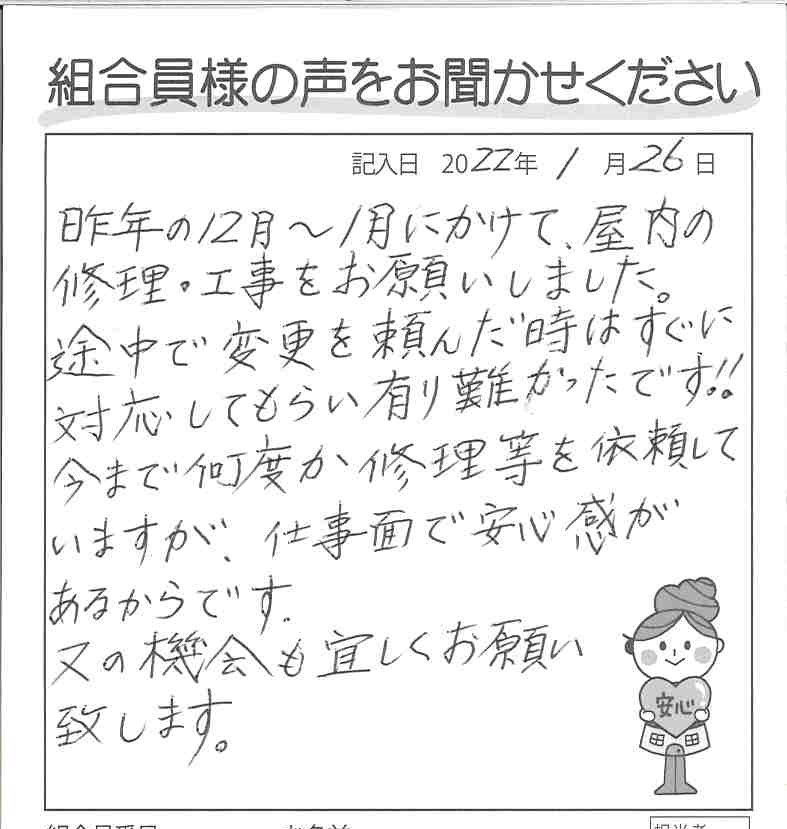 組合員様の声をお聞かせください
記入日 2022年 1月26日
昨年の12月～1月にかけて、屋内の
修理・工事をお願いしました。
途中で変更を頼んだ時はすぐに
対応してもらい有り難かったです!!
今まで何度か修理等を依頼して
いますが、仕事面で安心感が
あるからです.
又の機会も宜しくお願い
致します。
安心